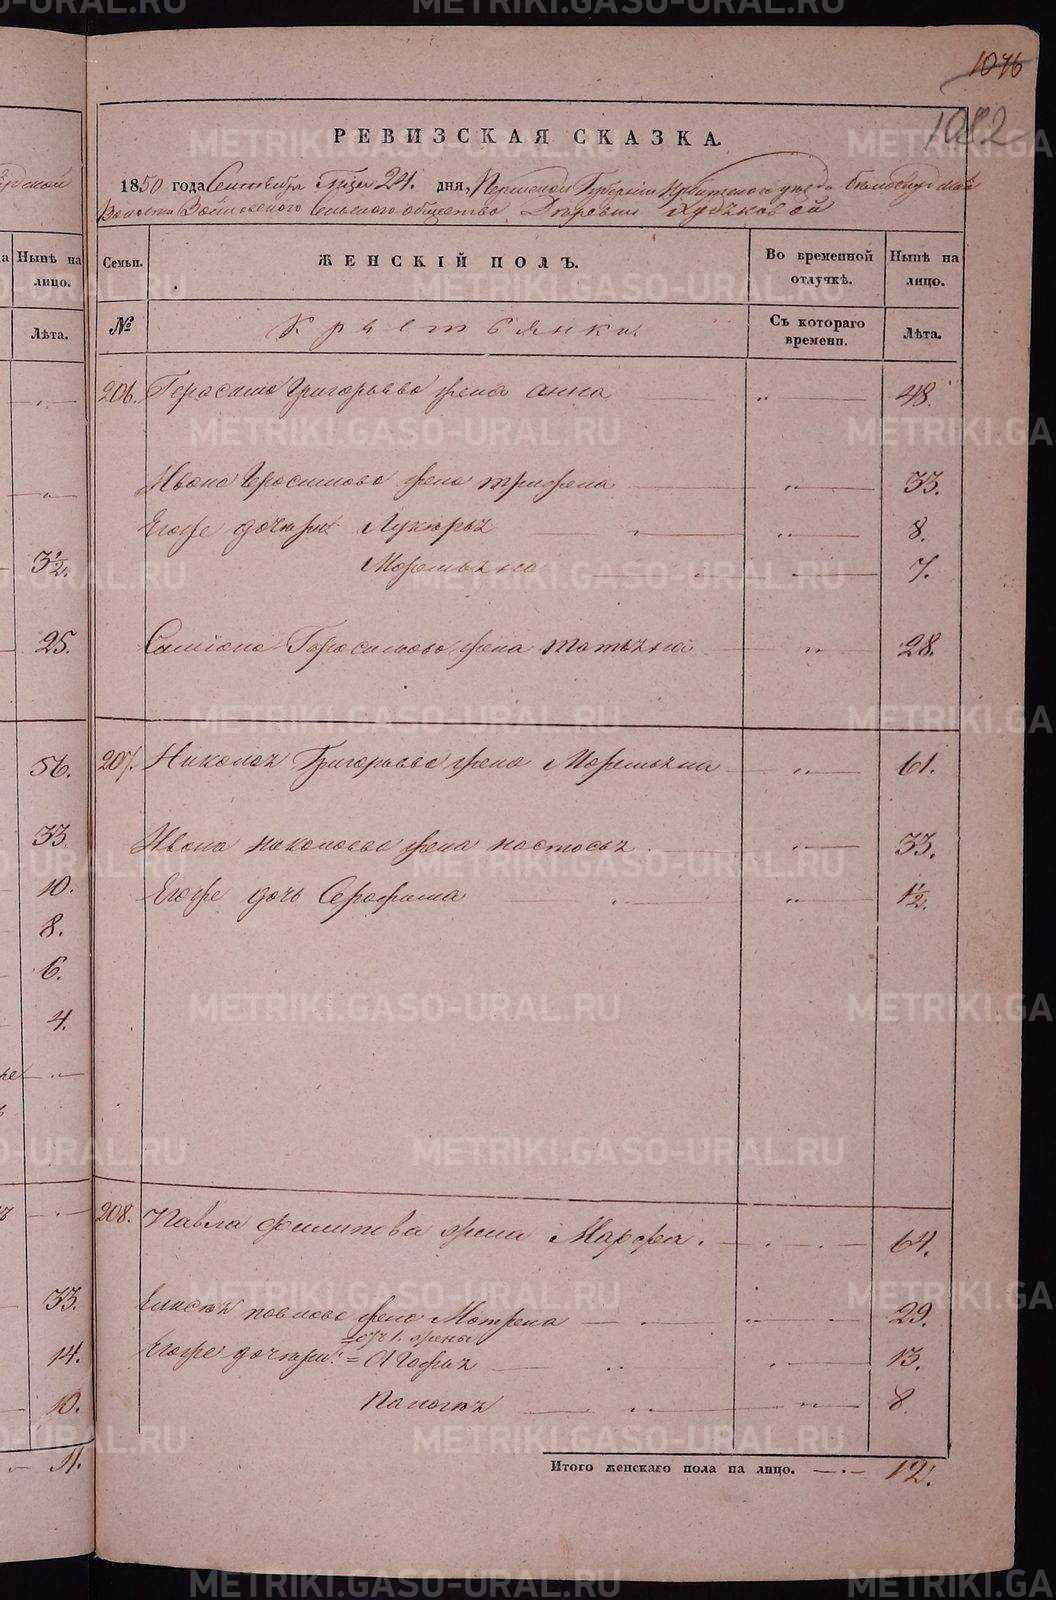 1046
1082
РЕВИЗСКАЯ СКАЗКА.
1850 года Сентября Мца 24. дня, Пермской Губернiи Ирбитскаго уезда Белослудской
Волости Зайковскаго Сельскаго общество Деревни
Семьи. ЖЕНСКІЙ ПОЛЪ. Во временной отлучкѣ. Нынѣ на лицо.
№ Крестьянки. Съ котораго времени. Лѣта.
206. Герасима Григорьева жена анна 48.
Ивана Герасимова жена трифена 33.
Егоже дочери Лукерья 8.
Моремьяна 7.
Симiона Герасимова жена татьяна 28.
207. Николая Григорьева жена Моремьяна 61.
Ивана николаева жена настасья 33.
Егоже дочь Серафима 1½.
208. Павла филипова жена Марфа. 64.
Елисея павлова жена Матрена 29.
=отъ 1. жены
Егоже дочери: = Агафья 13.
Палагея 8
Итого женскаго пола на лицо. 12.
Нынѣ на лицо.
Лѣта.
3½.
25.
56.
33.
10.
8.
6.
4.
33.
14.
10.
11.
METRIKI.GASO-URAL.RU